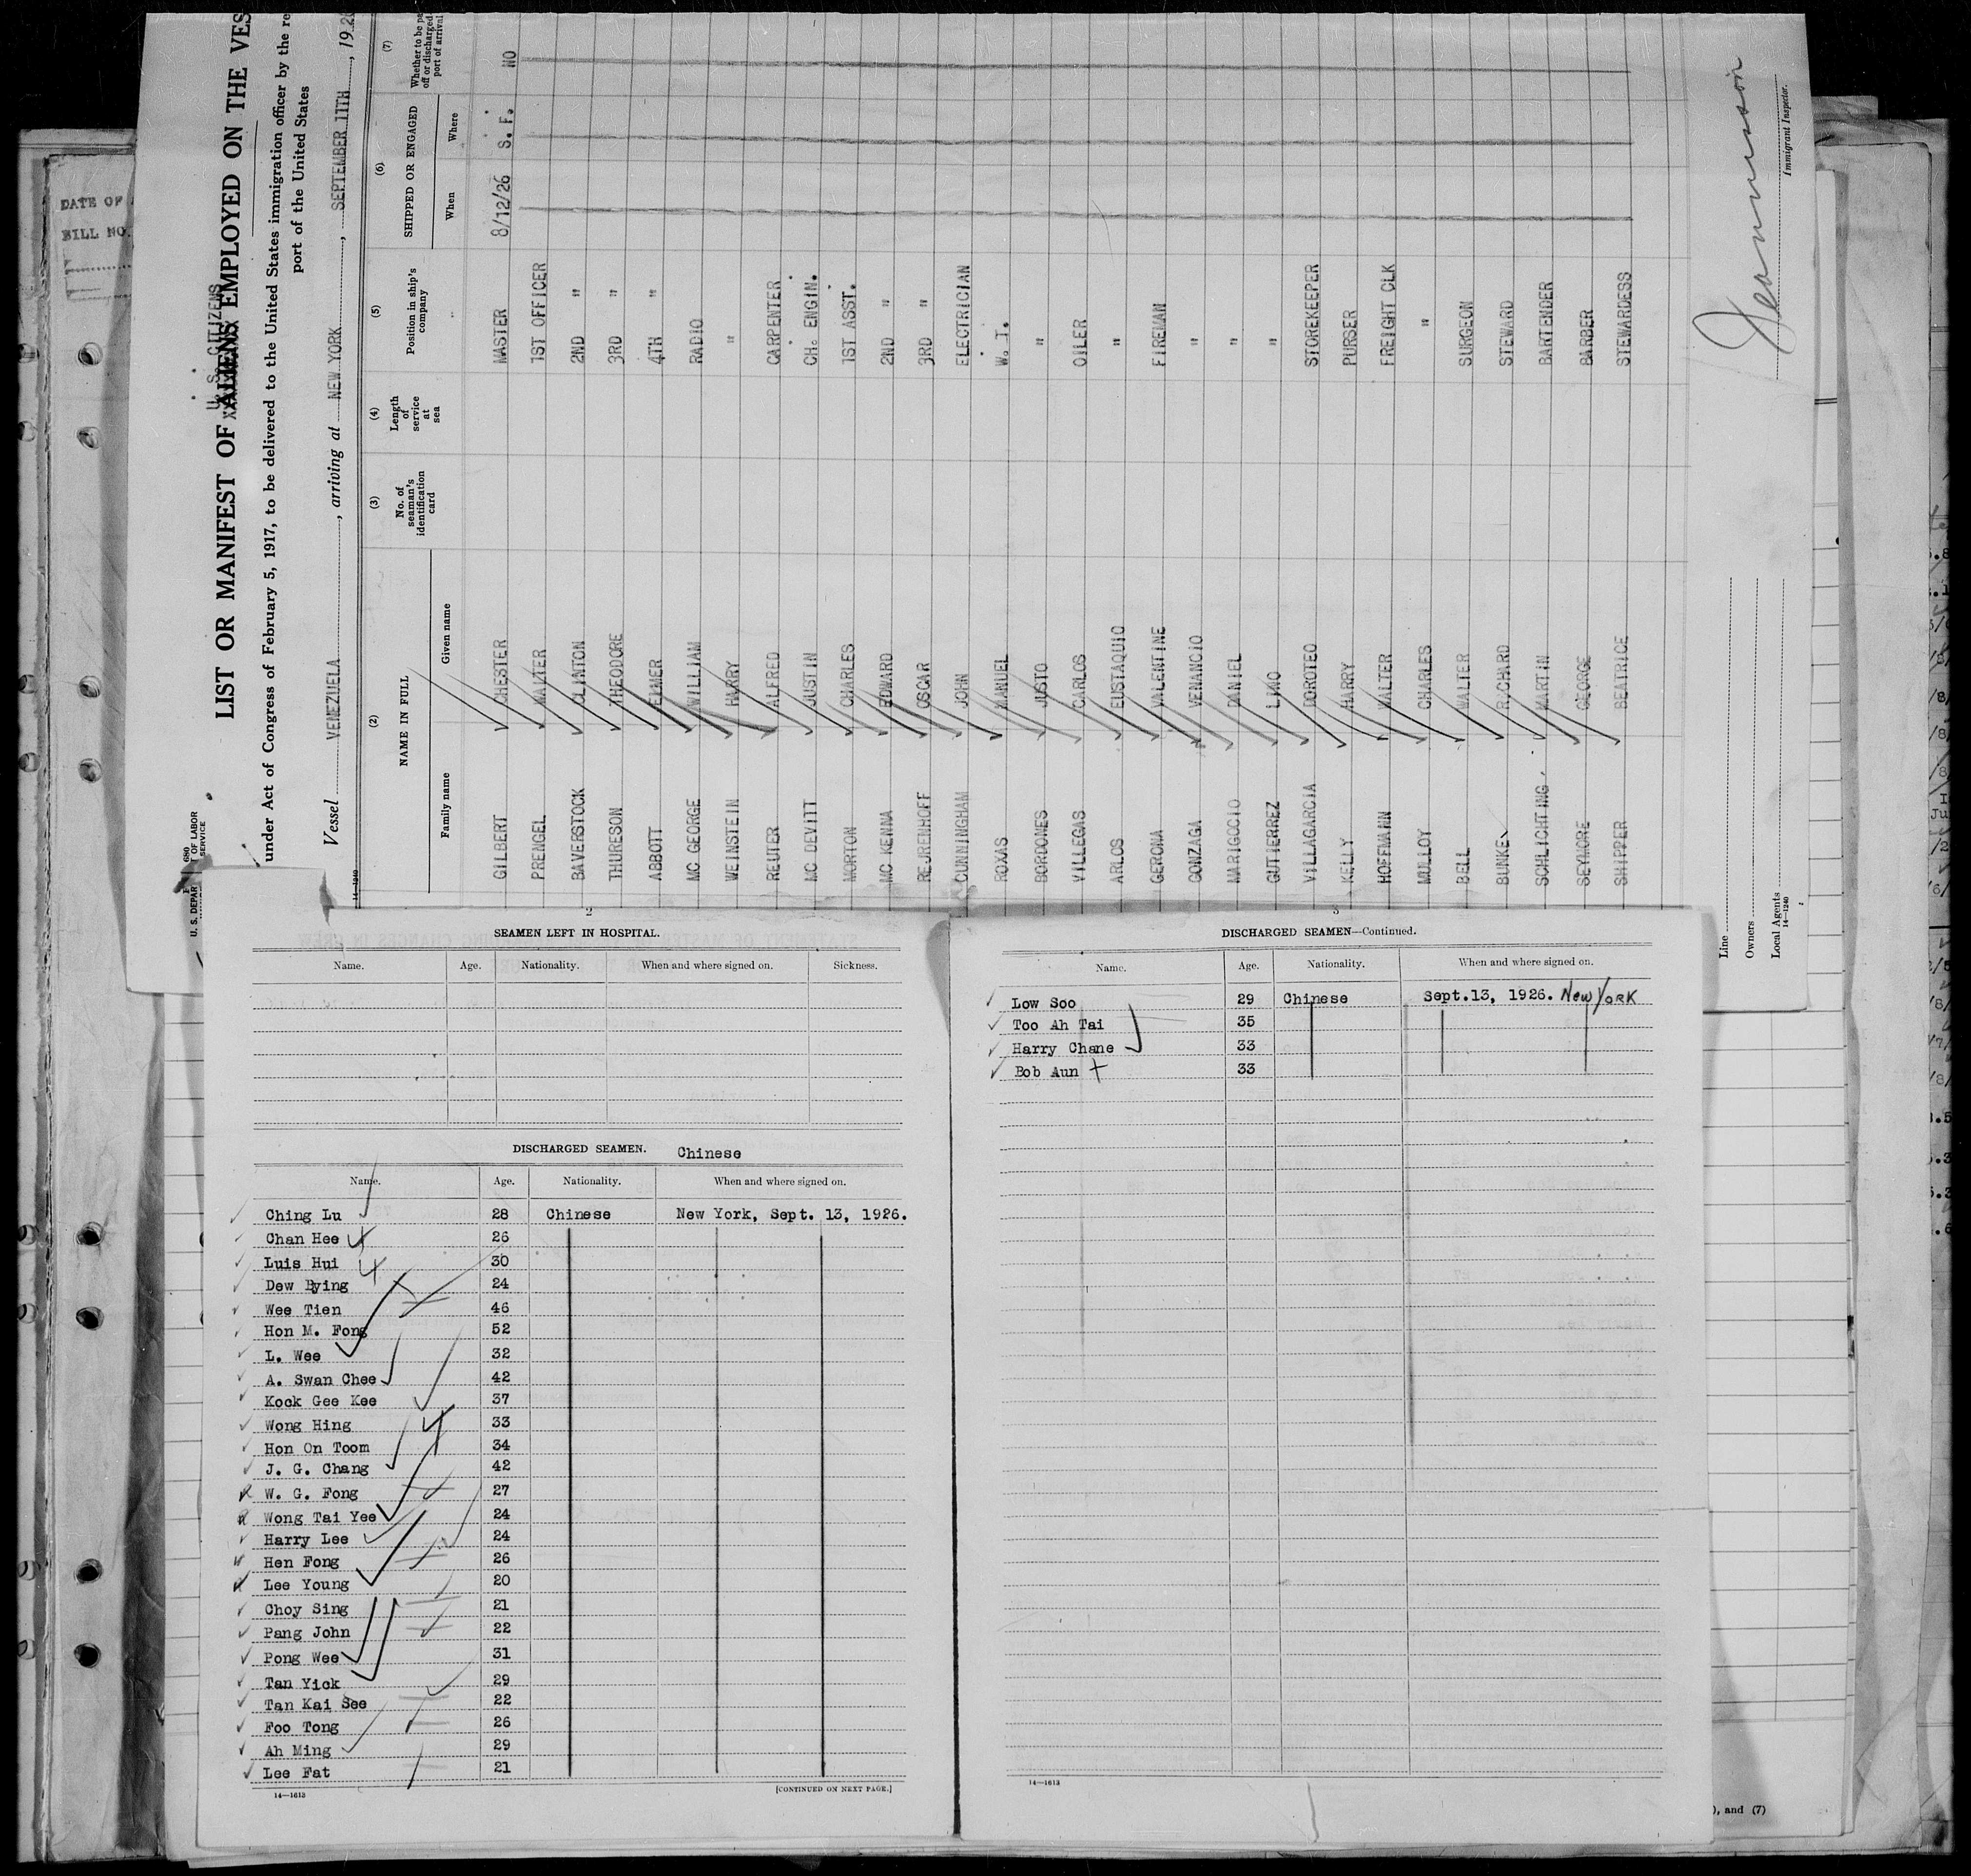 DATE OF
BILL NO.
U. S. CITIZENS
LIST OR MANIFEST OF ALIENS EMPLOYED ON THE VES
under Act of Congress of February 5, 1917, to be delivered to the United States immigration officer by the re
port of the United States
Vessel VENEZUELA, arriving at NEW YORK, SEPTEMBER 11TH, 19
680
U. S. DEPAR OF LABOR
SERVICE
14-1240
(2) (3) (4) (5) (6) (7)
NAME IN FULL
No. of seaman's identification card
Length of service at sea
Position in ship's company
SHIPPED OR ENGAGED
Whether to be pa
off or discharged
port of arrival
Family name Given name When Where
GILBERT CHESTER MASTER 8/12/26 S. F. NO
PRENGEL WALTER 1ST OFFICER
BAVERSTOCK CLINTON 2ND "
THURESON THEODORE 3RD "
ABBOTT ELMER 4TH "
MC GEORGE WILLIAM RADIO
WEINSTEIN HARRY "
REUTER ALFRED CARPENTER
MC DEVITT JUSTIN CH. ENGIN.
MORTON CHARLES 1ST ASST.
MC KENNA EDWARD 2ND "
OSCAR 3RD "
CUNNINGHAM JOHN ELECTRICIAN
ROXAS MANUEL W. T.
BORDONES JUSTO "
VILLEGAS CARLOS OILER
ARLOS EUSTAQUIO "
GERONA VALENTINE FIREMAN
GONZAGA VENANCIO "
MARIGOCIO DANIEL "
GUTIERREZ LINO "
VILLAGARCIA DOROTEO STOREKEEPER
KELLY HARRY PURSER
HOFFMANN WALTER FREIGHT CLK
MULLOY CHARLES "
BELL WALTER SURGEON
BUNKE RICHARD STEWARD
SCHLICHTING, MARTIN BARTENDER
SEYMORE GEORGE BARBER
SHIPPER BEATRICE STEWARDESS
Immigrant Inspector.
Line
Owners
Local Agents
14-1240
2
SEAMEN LEFT IN HOSPITAL.
Name. Age. Nationality. When and where signed on. Sickness.
DISCHARGED SEAMEN. Chinese
Name. Age. Nationality. When and where signed on.
Ching Lu 28 Chinese New York, Sept. 13, 1926.
Chan Hee 26
Luis Hui 30
Dew Bying 24
Wee Tien 46
Hon M. Fong 52
L. Wee 32
A. Swan Chee 42
Kock Gee Kee 37
Wong Hing 33
Hon On Toom 34
J. G. Chang 42
W. G. Fong 27
Wong Tai Yee 24
Harry Lee 24
Hen Fong 26
Lee Young 20
Choy Sing 21
Pang John 22
Pong Wee 31
Tan Yick 29
Tan Kai See 22
Foo Tong 26
Ah Ming 29
Lee Fat 21
14—1613
[CONTINUED ON NEXT PAGE.]
3
DISCHARGED SEAMEN—Continued.
Name. Age. Nationality. When and where signed on.
Low Soo 29 Chinese Sept.13, 1926. New York
Too Ah Tai 35
Harry Chane 33
Bob Aun 33
14—1613
), and (7)